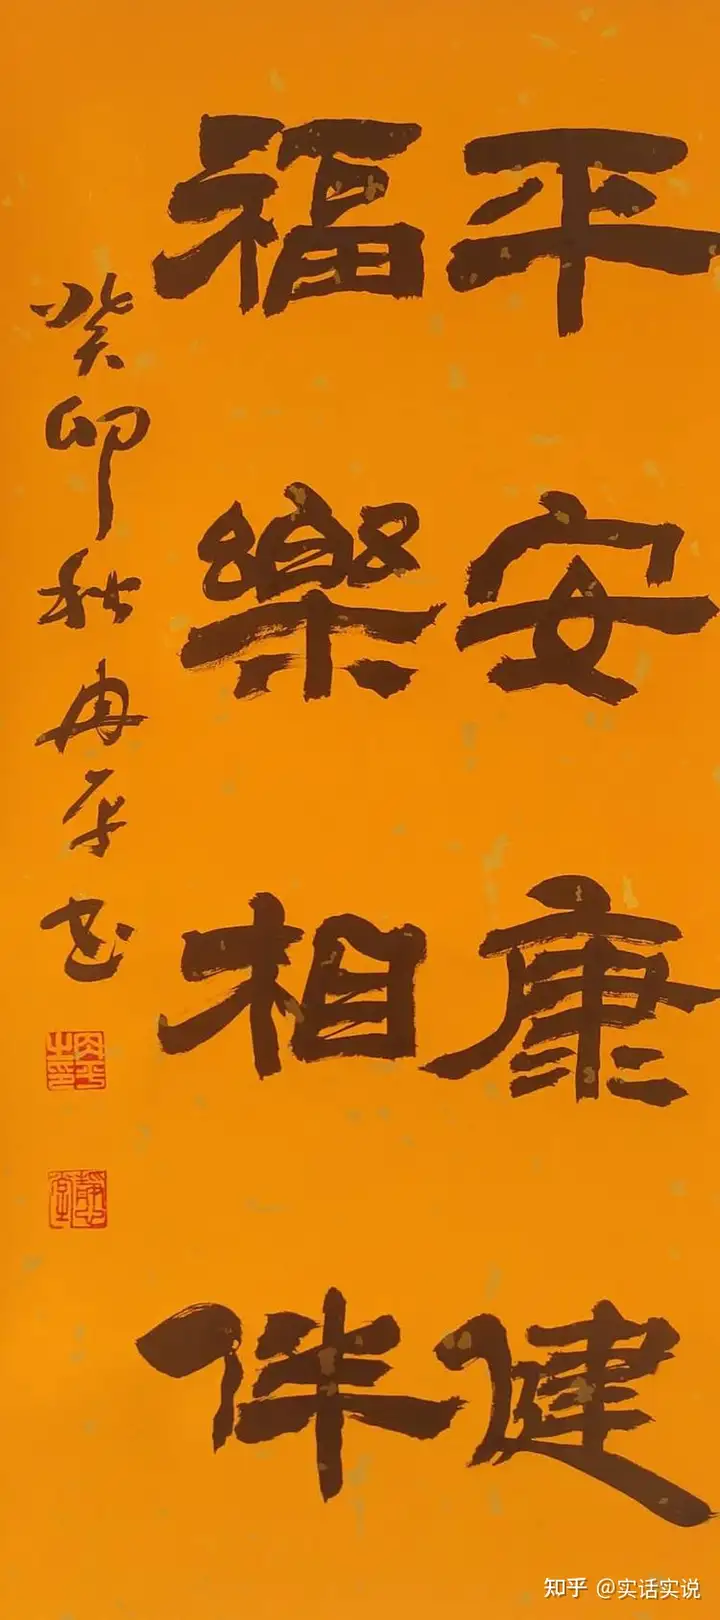 平安康健
福樂相伴
癸卯秋冉平书
知乎 @实话实说